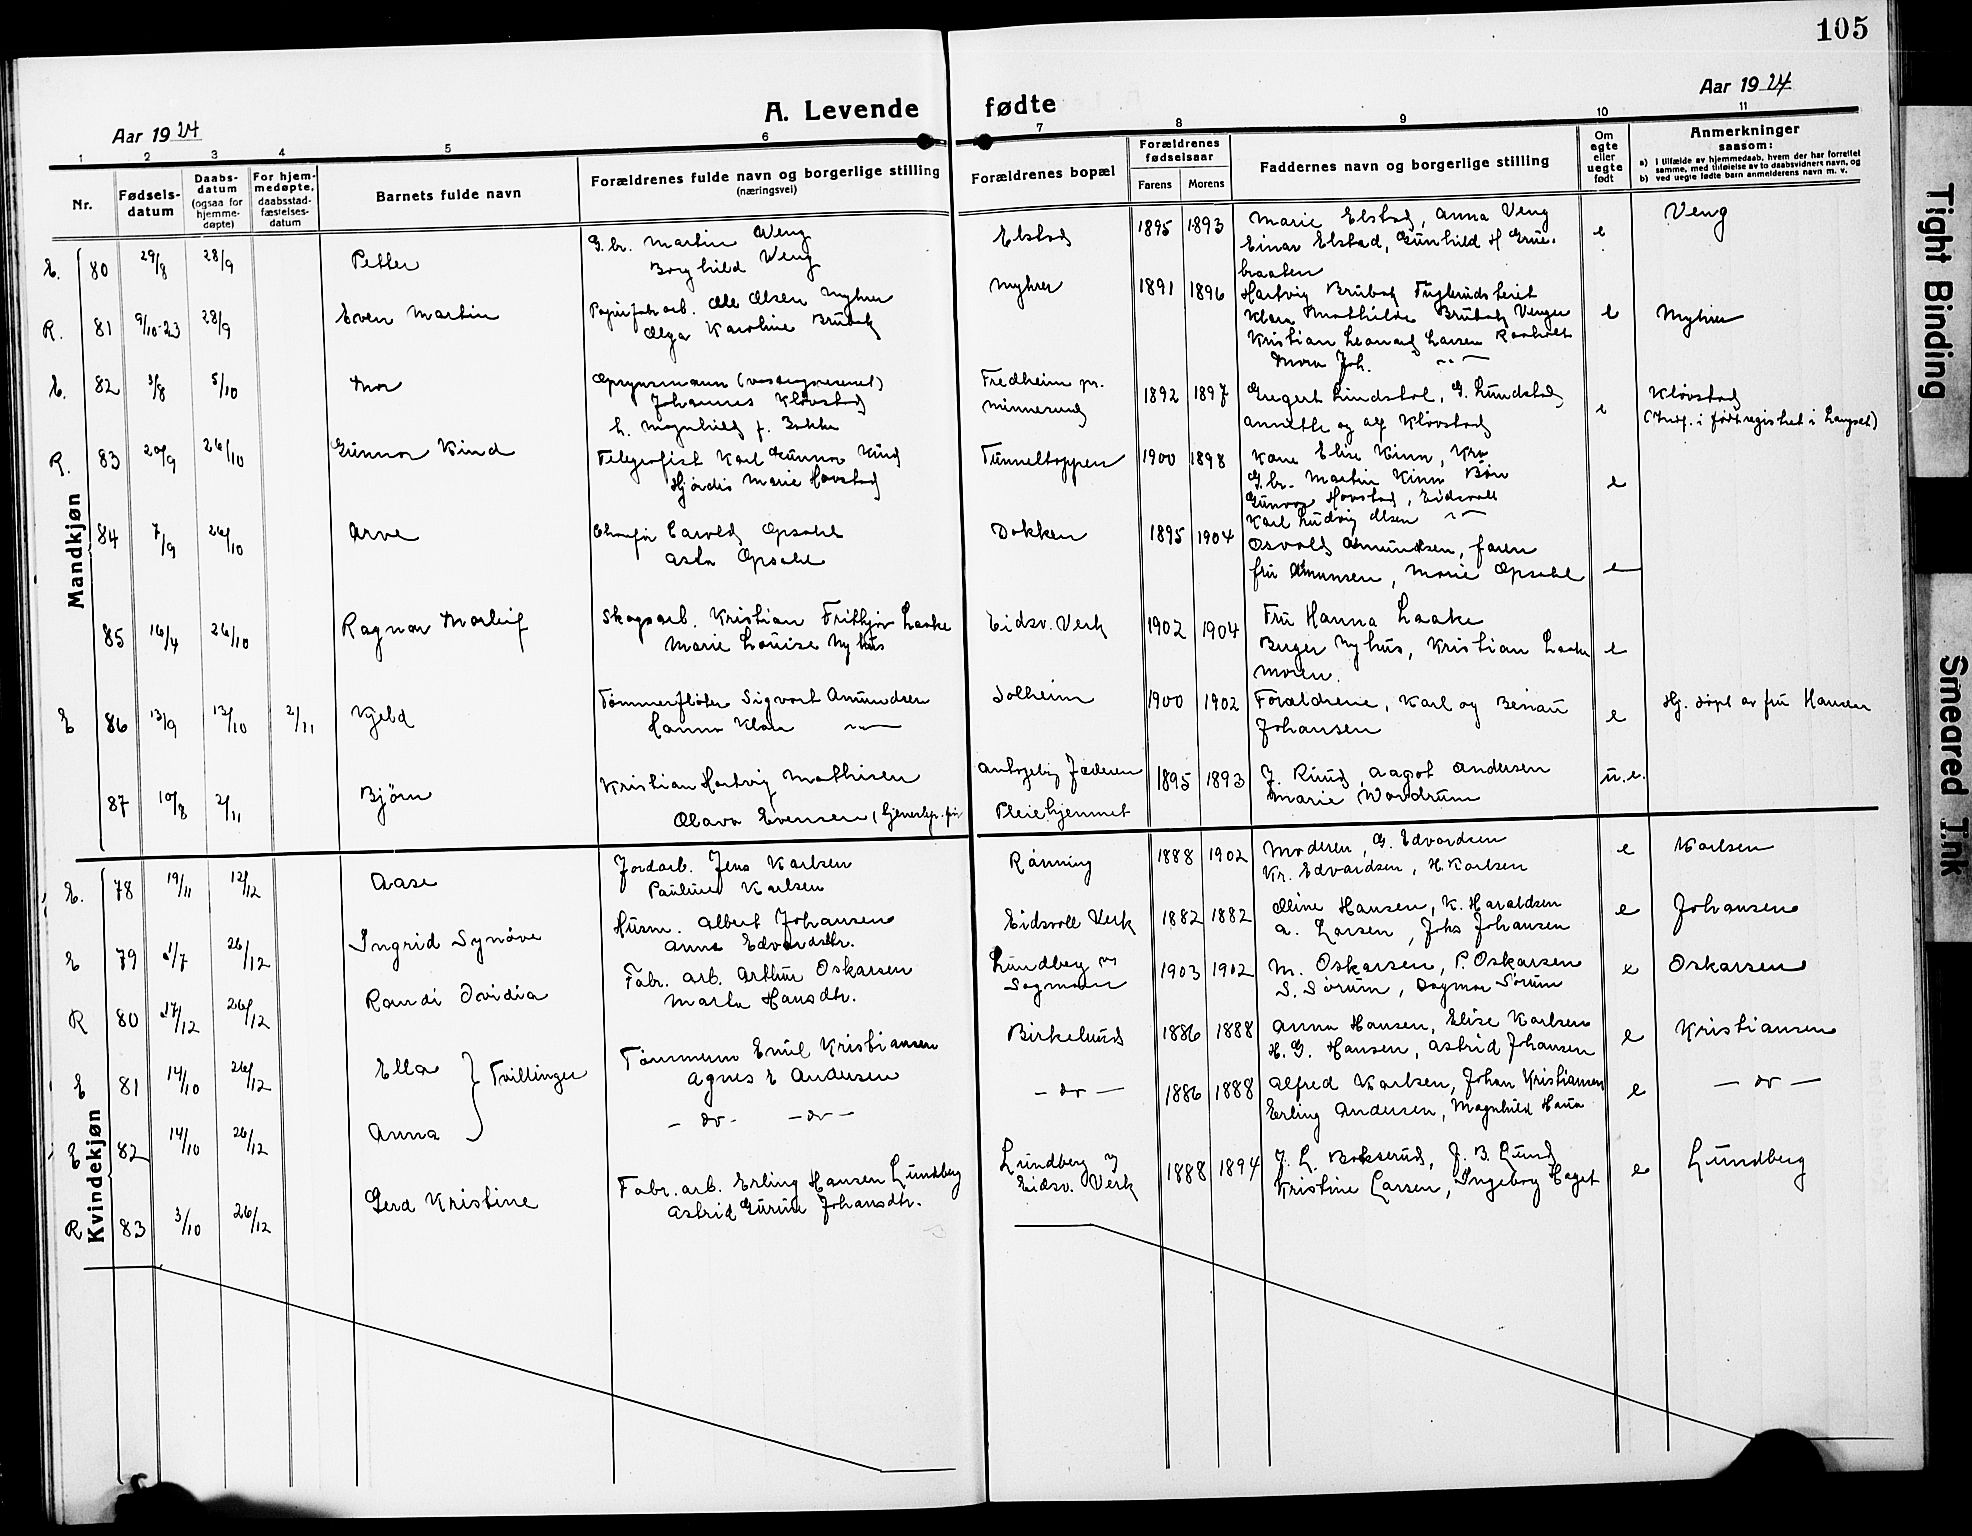 105
Aar 1924
Aar 1924
A. Levende fødte
1 2 3 4 5 6 7 8 9 10 11
Nr.
Fødsels-
datum
Daabs-
datum
(ogsaa for
hjemme-
døpte)
For hjem-
medøpte,
daabsstad-
fæstelses-
datum
Barnets fulde navn
Forældrenes fulde navn og borgerlige stilling
(næringsvei)
Forældrenes bopæl
Forældrenes
fødselsaar
Farens Morens
Faddernes navn og borgerlige stilling
Om
egte
eller
uegte
født
Anmerkninger
saasom:
a) i tilfælde av hjemmedaab, hvem der har forrettet
samme, med tilføielse av to daabsvidners navn, og
b) ved uegte fødte barn anmelderens navn m. v.
Mandkjøn
E. 80 29/8 28/9 Petter
G.br. Martin Weng
Borghild Weng
Elstad 1895 1893
Marie Elstad, Anna Veng
Einar Elstad, Gunhild H Grue-
braaten
e Veng
R. 81 9/10-23 28/9 Even Martin
Papirfabarb. Ole Olsen Myhrer
Olga Karoline Brubak
Myhrer 1891 1896
Hartvig Brubak
Klara Mathilde Brubak
Kristian Leonard Larsen Raaholt
Mora Joh.
e Myhrer
E. 82 3/8 5/10 Thor
Johannes Kløvstad
h. Magnhild f. Bakke
Fredheim pr.
Minnesund
1892 1897
Lindstøl, G. Lundstad
Annette og Alf Kløvstad
e Kløvstad
(Indf. i fødtregistret i Langset)
R. 83 20/9 26/10 Gunnar Kind
Telegrafist Karl Gunnar Kind
Hjørdis Marie Hovstad
Tunneltoppen 1900 1898
Kare Elise Kinn,
G.br. Martin Kinn Bøn
Gunvor Hovstad, Eidsvoll
Karl Ludvig Olsen
e
84 7/9 26/10 Arve
Chaufør Harald Opsahl
Asta Opsahl
Dokken 1895 1904
Osvald Amundsen, faren
fru Amunsen, Marie Opsahl
e
85 16/4 26/10 Ragnar Thorleif
Skogsarb. Kristian Frithjov Laake
Marie Louise Nyhus
Eidsv. Verk 1902 1904
Fru Hanna Laake
Birger Nyhus, Kristian Laake
moren.
e
E 86 13/9 13/10 2/11 Kjeld
Tømmerfløter Sigvart Amundsen
Hanna Klara
Solheim 1900 1902
Forældrene, Karl og Benau
Johansen
e Hj. døpt av fru Hansen
87 10/8 2/11 Bjørn
Kristian Hartvig Mathisen
Olava Evensen
Pleiehjemmet
1895 1893
J. Ruud, Aagot Andersen
Marie Wardrum
u.e.
Kvindekjøn
E. 78 19/11 12/12 Aase
Jordarb. Jens Karlsen
Pauline Karlsen
Rønning 1888 1902
Moderen, G. Edvardsen
Kr. Edvardsen, H. Karlsen
e Karlsen
E 79 1/7 26/12 Ingrid Synøve
Husm. Albert Johansen
Anna Edvardsdtr.
Eidsvoll Verk 1882 1882
Oline Hansen, K. Haraldsen
A. Larsen, Johs Johansen
e Johansen
R 80 17/12 26/12 Randi Ovidia
Fabr. arb. Arthur Oskarsen
Marta Hansdtr.
Lundberg
Sagmoen
1903 1902
M. Oskarsen, P. Oskarsen
S. Sørum, Dagmar Sørum
e Oskarsen
E 81 14/10 26/12 Ella } Tvillinger
Tømmerm Emil Kristiansen
Agnes E Andersen
Birkelund 1886 1888
Anna Hansen, Elise Karlsen
H. G. Hansen, Astrid Johansen
e Kristiansen
E 82 14/10 26/12 Anna
- do - - do -
- do - 1886 1888
Alfred Karlsen, Johan Kristiansen
Erling Andersen, Magnhild
e - do -
R 83 3/10 26/12 Gerd Kristine
Fabr. arb. Erling Hansen Lundberg
Astrid Gurine Johansdtr.
Lundberg
Eidsv. Verk
1888 1894
J. L. Bokserud, J. B. Lund
Kristine Larsen, Ingeborg Haget
e Lundberg
Tight Binding
Smeared Ink